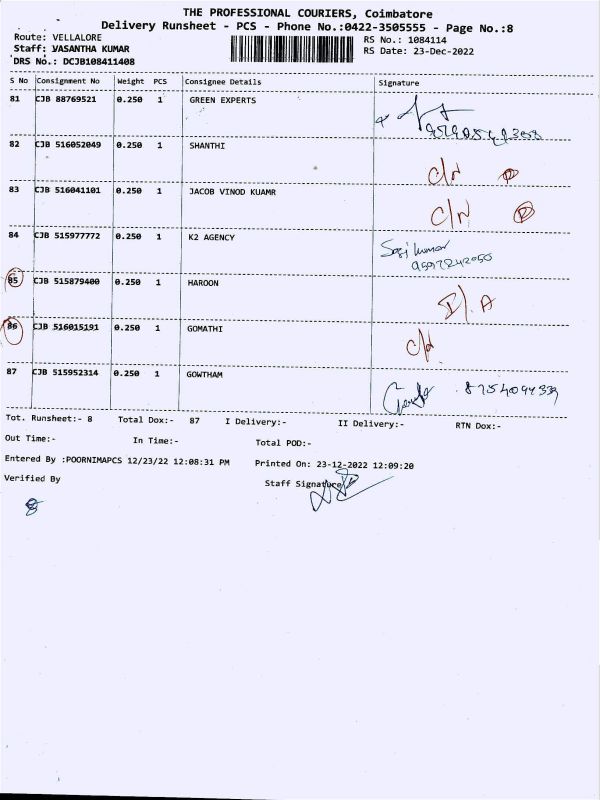 THE PROFESSIONAL COURIERS, Coimbatore
Delivery Runsheet - PCS - Phone No.:0422-3505555 - Page No.:8
Route: VELLALORE
RS No.: 1084114
Staff: VASANTHA KUMAR
RS Date: 23-Dec-2022
DRS No.: DCJB108411408
S No Consignment No Weight PCS Consignee Details Signature
81 CJB 88769521 0.250 1 GREEN EXPERTS
82 CJB 516052049 0.250 1 SHANTHI C/N
83 CJB 516041101 0.250 1 JACOB VINOD KUAMR C/N
84 CJB 515977772 0.250 1 K2 AGENCY
85 CJB 515879400 0.250 1 HAROON
86 CJB 516015191 0.250 1 GOMATHI
87 CJB 515952314 0.250 1 GOWTHAM
Tot. Runsheet:- 8 Total Dox:- 87 I Delivery:- II Delivery:- RTN Dox:-
Out Time:- In Time:- Total POD:-
Entered By :POORNIMAPCS 12/23/22 12:08:31 PM Printed On: 23-12-2022 12:09:20
Verified By Staff Signature